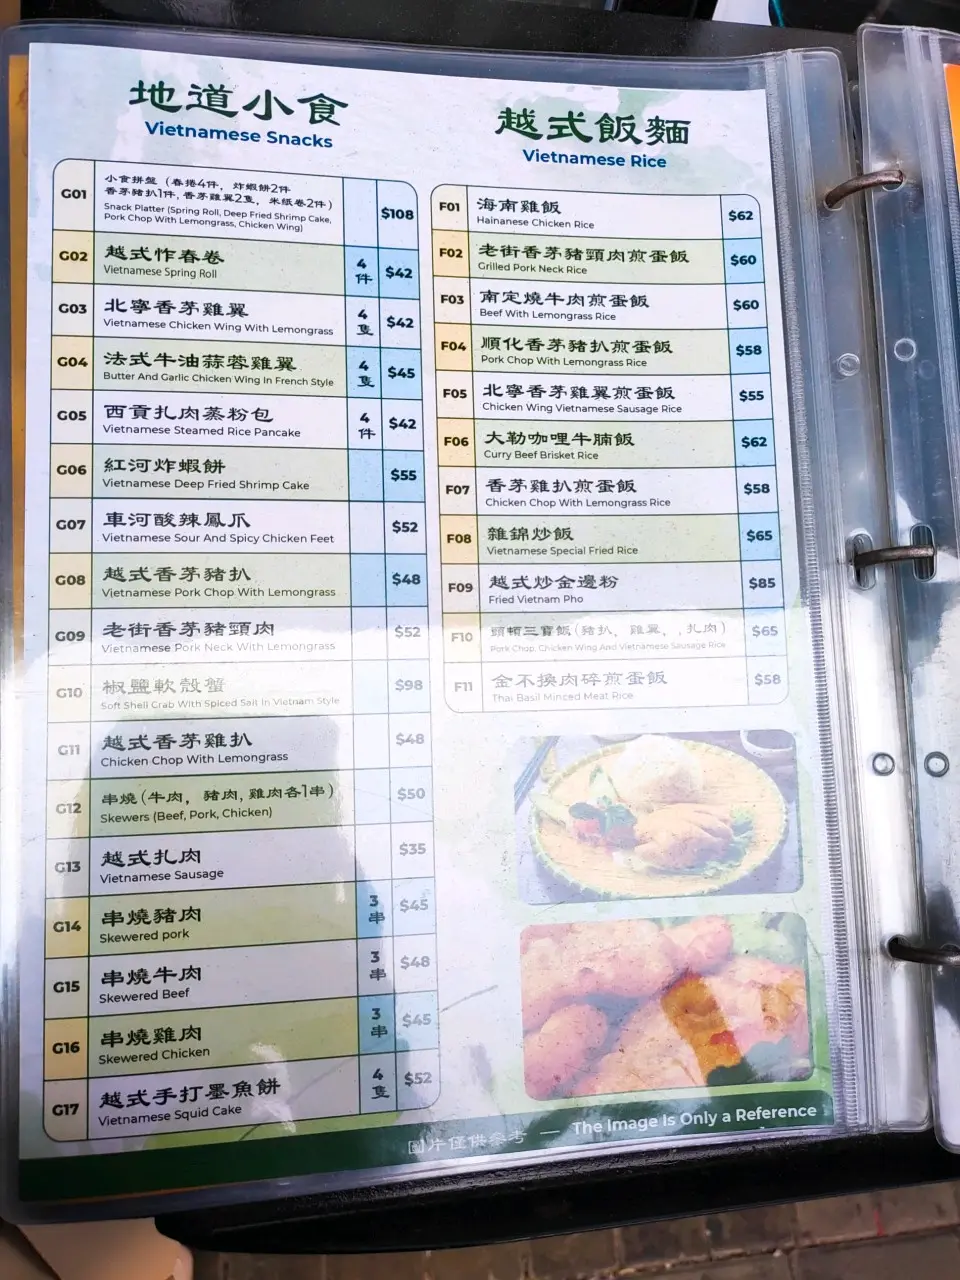 地道小食
Vietnamese Snacks
G01
小食拼盤（春捲4件，炸蝦餅2件
香茅豬扒1件，香茅雞翼2隻，米紙卷2件）
Snack Platter (Spring Roll, Deep Fried Shrimp Cake,
Pork Chop With Lemongrass, Chicken Wing)
$108
G02
越式炸春卷
Vietnamese Spring Roll
4件
$42
G03
北寧香茅雞翼
Vietnamese Chicken Wing With Lemongrass
4隻
$42
G04
法式牛油蒜蓉雞翼
Butter And Garlic Chicken Wing In French Style
4隻
$45
G05
西貢扎肉蒸粉包
Vietnamese Steamed Rice Pancake
4件
$42
G06
紅河炸蝦餅
Vietnamese Deep Fried Shrimp Cake
$55
G07
車河酸辣鳳爪
Vietnamese Sour And Spicy Chicken Feet
$52
G08
越式香茅豬扒
Vietnamese Pork Chop With Lemongrass
$48
G09
老街香茅豬頸肉
Vietnamese Pork Neck With Lemongrass
$52
G10
椒鹽軟殼蟹
Soft Shell Crab With Spiced Salt In Vietnam Style
$98
G11
越式香茅雞扒
Chicken Chop With Lemongrass
$48
G12
串燒（牛肉，豬肉，雞肉各1串）
Skewers (Beef, Pork, Chicken)
$50
G13
越式扎肉
Vietnamese Sausage
$35
G14
串燒豬肉
Skewered pork
3串
$45
G15
串燒牛肉
Skewered Beef
3串
$48
G16
串燒雞肉
Skewered Chicken
3串
$45
G17
越式手打墨魚餅
Vietnamese Squid Cake
4隻
$52
越式飯麵
Vietnamese Rice
F01
海南雞飯
Hainanese Chicken Rice
$62
F02
老街香茅豬頸肉煎蛋飯
Grilled Pork Neck Rice
$60
F03
南定燒牛肉煎蛋飯
Beef With Lemongrass Rice
$60
F04
順化香茅豬扒煎蛋飯
Pork Chop With Lemongrass Rice
$58
F05
北寧香茅雞翼煎蛋飯
Chicken Wing Vietnamese Sausage Rice
$55
F06
大勒咖哩牛腩飯
Curry Beef Brisket Rice
$62
F07
香茅雞扒煎蛋飯
Chicken Chop With Lemongrass Rice
$58
F08
雜錦炒飯
Vietnamese Special Fried Rice
$65
F09
越式炒金邊粉
Fried Vietnam Pho
$85
F10
頭頓三寶飯（豬扒，雞翼，，扎肉）
Pork Chop, Chicken Wing And Vietnamese Sausage Rice
$65
F11
金不換肉碎煎蛋飯
Thai Basil Minced Meat Rice
$58
圖片僅供參考 — The Image Is Only a Reference